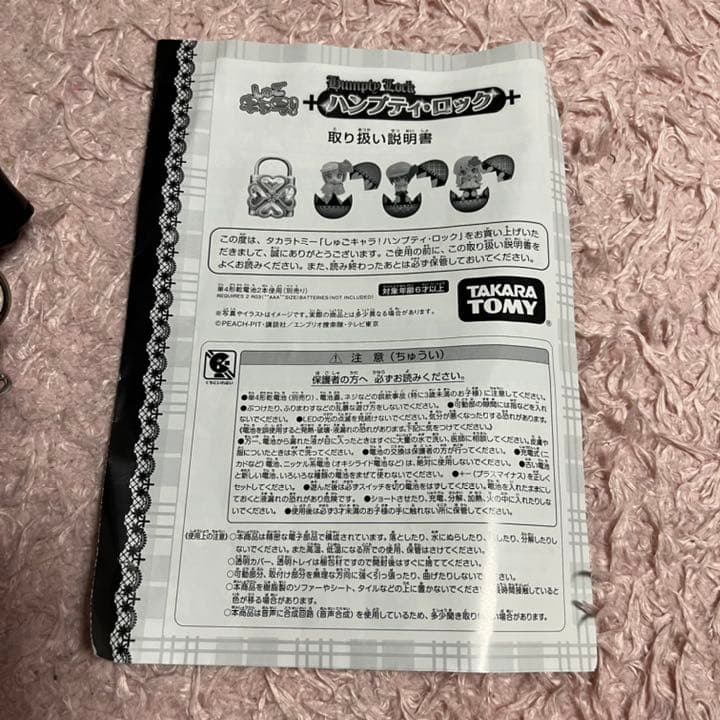 しゅごキャラ!
Humpty Lock
ハンプティ・ロック
取り扱い説明書
この度は、タカラトミー「しゅごキャラ!ハンプティ・ロック」をお買い上げいた
だきまして、誠にありがとうございます。ご使用の前に、この取り扱い説明書を
よくお読みください。また、読み終わったあとは必ず保管しておいてください。
単4形乾電池2本使用(別売り)
REQUIRES 2 R03("AAA"SIZE)BATTERIES(NOT INCLUDED)
対象年齢6才以上
※写真やイラストはイメージです。実際の商品とは多少異なる場合があります。
©PEACH-PIT・講談社/エンブリオ捜索隊・テレビ東京
TAKARA
TOMY
くちにいれない
⚠ 注意(ちゅうい)
保護者の方へ 必ずお読みください。
●単4形乾電池(別売り)、電池蓋、ネジなどの誤飲事故(特に3歳未満のお子様)に注意してください。
●ぶつけたり、ふりまわすなどの乱暴な遊び方をしないでください。 ●可動部の隙間には指などを入れ
ないでください。 ●LEDの光の点滅を見続けないでください。気分が悪くなったりする恐れがあります。
《電池を誤使用すると発熱・破壊・液漏れの恐れがあります。下記に気をつけてください》
●万一、電池から漏れた液が目に入ったときはすぐに大量の水で洗い、医師に相談してください。皮膚や
服についたときは水で洗ってください。 ●電池の交換は保護者の方が行ってください。 ●充電式(ニ
カドなど)電池、ニッケル系電池(オキシライド電池など)は、絶対に使用しないでください。 ●古い電池
と新しい電池、いろいろな種類の電池をまぜて使わないでください。 ●+-(プラスマイナス)を正しく
セットしてください。 ●遊んだ後は必ずスイッチを切り電池をはずしてください。電池を入れたままにし
ておくと液漏れの恐れがあり危険です。 ●ショートさせたり、充電、分解、加熱、火の中に入れたりしな
いでください。 ●使用後は必ず3才未満のお子様の手に触れない所に保管してください。
《使用上の注意》○本商品は精密な電子部品で構成されています。落としたり、水にぬらしたり、したり、分解したり
しないでください。また高温、低温になる所での使用、保管はさけてください。
○透明カバー、透明トレイは梱包材ですので開封後はすぐに捨ててください。
○可動部分、取付け部分を無理な方向に強く引っ張ったり、曲げたりしないでください。
○本商品を樹脂製のソファーやシート、タイルなどの上に置かないでください。時間接触していると
色が移る場合があります。
○本商品は音声に合成回路(音声合成)を使用しているため、多少聞き取りい場合があります。